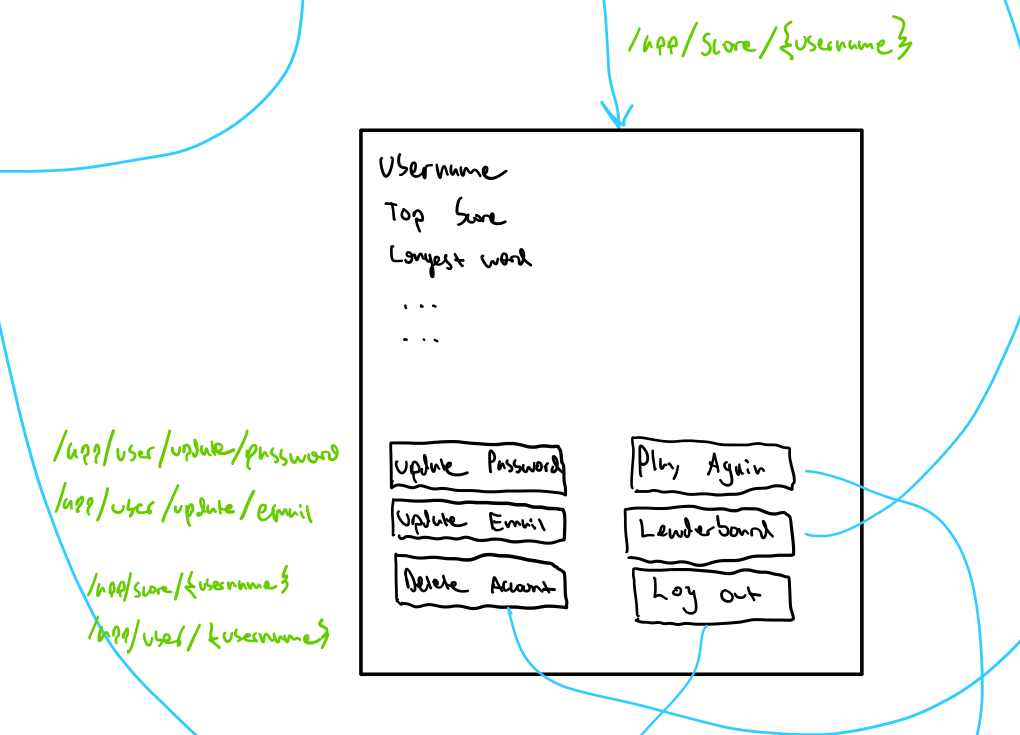 /app/Score/{username}
Username
Top Score
Longest word
...
...
/app/user/update/password
/app/user/update/email
/app/score/{username}
/app/user/{username}
Update Password
Update Email
Delete Account
Play Again
Leaderboard
Log out